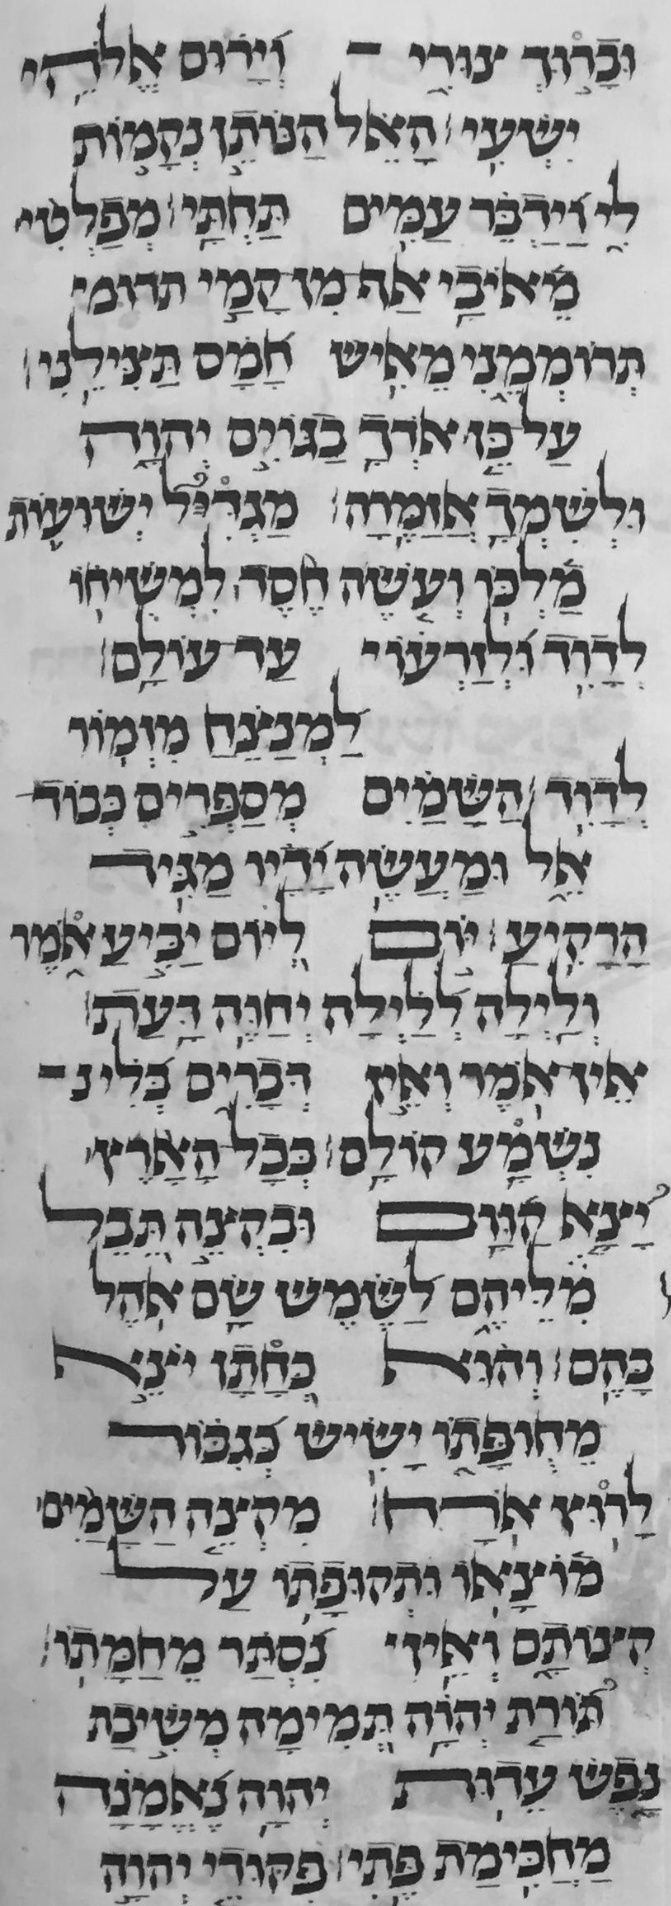 וּבָר֣וּךְ צוּרִ֑י וְ֝יָר֗וּם אֱלֹהֵ֥י
יִשְׁעִֽי׃ הָאֵ֗ל הַנּוֹתֵ֣ן נְקָמ֣וֹת
לִ֑י וַיַּדְבֵּ֖ר עַמִּ֣ים תַּחְתָּֽי׃ מְפַלְּטִ֗י
מֵאֹ֫יְבָ֥י אַ֣ף מִן קָ֭מַי תרומ
תְּרוֹמְמֵ֑נִי מֵאִ֥ישׁ חָ֝מָ֗ס תַּצִּילֵֽנִי׃
עַל כֵּ֤ן אוֹדְךָ֖ בַגּוֹיִ֥ם יְהוָ֑ה
וּלְשִׁמְךָ֥ אֲזַמֵּֽרָה׃ מַגְדִּיל֮ יְשׁוּע֢וֹת
מַ֫לְכּ֥וֹ וְעֹ֤שֶׂה חֶ֨סֶד לִמְשִׁיח֗וֹ
לְדָוִ֥ד וּ֝לְזַרְע֗וֹ עַד עוֹלָֽם׃
לַמְנַצֵּ֗חַ מִזְמ֥וֹר
לְדָוִֽד׃ הַשָּׁמַ֗יִם מְֽסַפְּרִ֥ים כְּבֽוֹד
אֵ֑ל וּֽמַעֲשֵׂ֥ה יָ֝דָ֗יו מַגִּ֥יד
הָרָקִֽיעַ׃ י֣וֹם לְ֭יוֹם יַבִּ֣יעַֽ אֹ֑מֶר
וְלַ֥יְלָה לְּ֝לַ֗יְלָה יְחַוֶּה דָּֽעַת׃
אֵֽין אֹ֭מֶר וְאֵ֣ין דְּבָרִ֑ים בְּ֝לִ֗י נ
נִשְׁמָ֥ע קוֹלָֽם׃ בְּכָל הָאָ֨רֶץ
יָ֘צָ֤א קַוָּ֗ם וּבִקְצֵ֣ה תֵ֭בֵל
מִלֵּיהֶ֑ם לַ֝שֶּׁ֗מֶשׁ שָֽׂם אֹ֥הֶל
בָּהֶֽם׃ וְה֗וּא כְּ֭חָתָן יֹצֵ֣א
מֵחוּפָּת֑וֹ יָשִׂ֥ישׂ כְּ֝גִבּ֗וֹר
לָר֥וּץ אֹֽרַח׃ מִקְצֵ֤ה הַשָּׁמַ֨יִם
מֽוֹצָא֗וֹ וּתְקוּפָת֥וֹ עַל
קְצוֹתָ֑ם וְאֵ֥ין נִ֝סְתָּ֗ר מֵֽחַמָּתֽוֹ׃
תּ֘וֹרַ֤ת יְהוָ֣ה תְּ֭מִימָה מְשִׁ֣יבַת
נָ֑פֶשׁ עֵד֥וּת יְהוָ֥ה נֶ֝אֱמָנָ֗ה
מַחְכִּ֥ימַת פֶּֽתִי׃ פִּקּ֘וּדֵ֤י יְהוָ֣ה